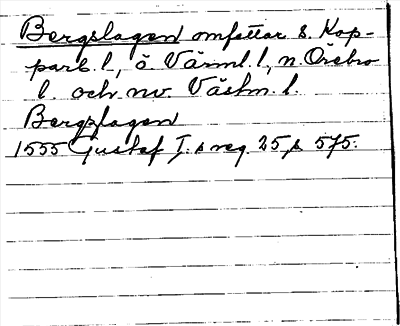 Bergslagen omfattar S. Kop-
parb. l, ö Värml. l, n. Örebro
l. och nv. Västm. l.
Bergzlagen
1555 Gustaf I.s reg. 25, s 575.